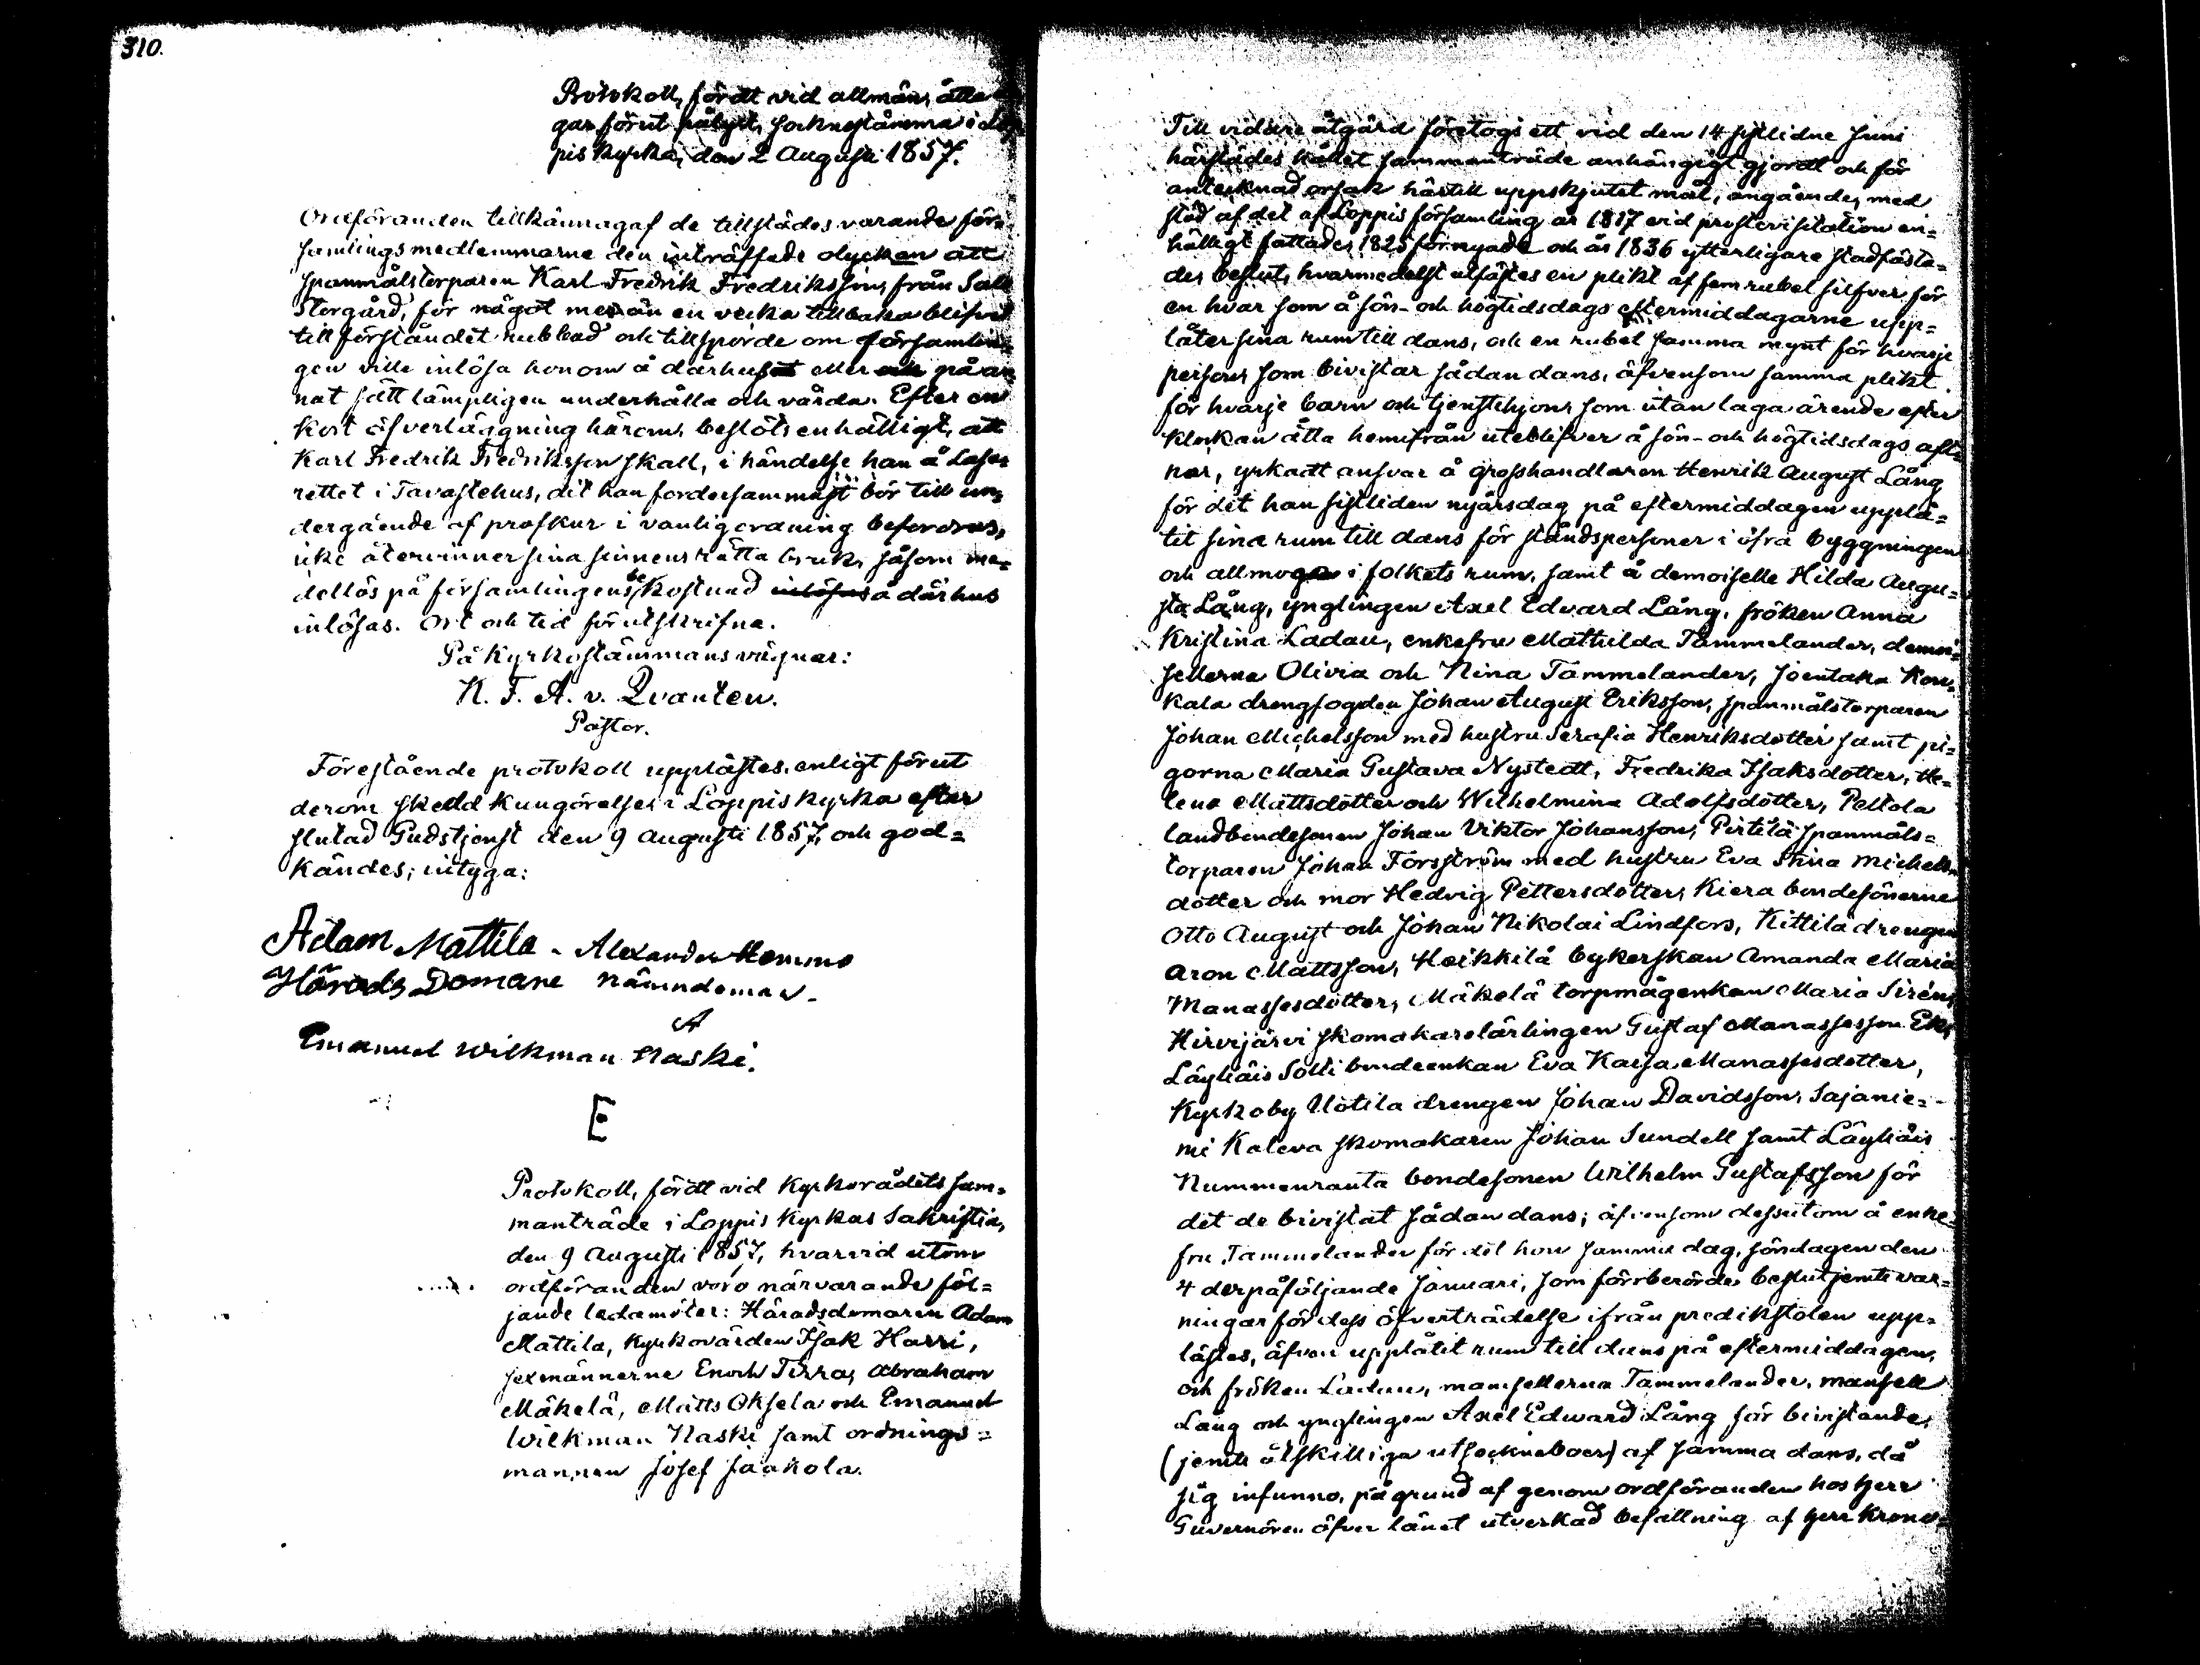 310.
Protokoll, fördt vid allmän, åtta da-
gar förut pålyst, sockenstämma i Lop-
pis kyrka, den 2 Augusti 1857.
Ordföranden tillkännagaf de tillstädes varande för-
samlingsmedlemmarne den inträffade olyckan att
spanmålstorparen Karl Fredrik Fredriksson, från Sall
Storgård, för något mer än en vecka tillbaka blifvit
till förståndet rubbad och tillsporde om församlin-
gen ville inlösa honom å dårhuset eller och på an-
nat sätt lämpligen underhålla och vårda. Efter en
kort öfverläggning härom, beslöts enhälligt, att
Karl Fredrik Fredriksson skall, i händelse han å Lasa-
rettet i Tavastehus, dit han fordersammast bör till un-
dergående af profkur i vanlig ordning befordras,
icke återvinner sina sinnens rätta bruk, såsom me-
dellös på församlingens bekostnad inlösas å dårhus
inlösas. Ort och tid förutskrifna.
På Kyrkostämmans vägnar:
K. F. A. v. Qvanten.
Pastor.
Förestående protokoll upplästes, enligt förut
derom skedd kungörelse, i Loppis kyrka efter
slutad Gudstjenst den 9 Augusti 1857, och god-
kändes; intyga:
Adam Mattila - Alexander Hemmo
Härads Domare Nämndeman.
A
Emanuel Wilkman Naski.
E
Protokoll, fördt vid Kyrkorådets sam-
manträde i Loppis Kyrkas Sakristia,
den 9 Augusti 1857, hvarvid utom
ordföranden voro närvarande föl-
jande ledamöter: Häradsdomaren Adam
Mattila, Kyrkovärden Isak Harri,
sexmännerne Enoch Tirra, Abraham
Mäkelä, Matts Oksela och Emanuel
Wilkman Naski samt ordnings-
mannen Josef Jaakola.
Till vidare åtgärd företogs ett vid den 14 sistlidne Juni
härstädes hållet sammanträde anhängigt gjordt och för
antecknad orsak härtill uppskjutet mål, angående, med
stöd af det af Loppis församling år 1817 vid prostevisitation en-
hälligt fattade, 1825 förnyade och år 1836 ytterligare stadfästa-
de, beslut, hvarmedelst utsästes en plikt af fem rubel silfver för
en hvar som å sön- och högtidsdags eftermiddagarne upp-
låter sina rum till dans, och en rubel samma mynt för hvarje
person, som bivistar sådan dans, äfvensom samma plikt
för hvarje barn och tjenstehjon, som utan laga ärende efter
klockan åtta hemifrån uteblifver å sön- och högtidsdags aft-
nar, yrkadt ansvar å grosshandlaren Henrik August Lång
för det han sistliden nyårsdag på eftermiddagen upplå-
tit sina rum till dans för ståndspersoner i öfra byggningen
och allmogen i folkets rum, samt å demoiselle Hilda Augu-
sta Lång, ynglingen Axel Edvard Lång, fröken Anna
Kristina Ladau, enkefru Mathilda Tammelander, demoi-
sellerna Olivia och Nina Tammelander, Joentaka Kou-
kala drengfogden Johan August Eriksson, spanmålstorparen
Johan Michelsson med hustru Serafia Henriksdotter samt pi-
gorna Maria Gustava Nystedt, Fredrika Isaksdotter, He-
lena Mattsdotter och Wilhelmina Adolfsdotter, Peltola
landbondesonen Johan Viktor Johansson, Pirtilä spanmåls-
torparen Johan Forsström med hustru Eva Stina Michels-
dotter och mor Hedvig Pettersdotter, Kiera bondesönerne
Otto August och Johan Nikolai Lindfors, Kittilä drengen
Aron Mattsson, Heikkilä bykerskan Amanda Maria
Manassesdotter, Mäkelä torpmågenkan Maria Sirén,
Hirvijärvi skomakarelärlingen Gustaf Manassesson Ek,
Läyliäis Solli bondeenkan Eva Kaisa Manassesdotter,
Kyrkoby Uotila drengen Johan Davidsson, Sajanie-
mi Kaleva skomakaren Johan Sundell samt Läyliäis
Nummenranta bondesonen Wilhelm Gustafsson för
det de bivistat sådan dans; äfvensom dessutom å enke-
fru Tammelander för det hon samma dag, söndagen den
4 derpåföljande Januari, som förrberörde beslut jemte var-
ningar för dess öfverträdelse ifrån predikstolen upp-
lästes, äfven upplåtit rum till dans på eftermiddagen,
och fröken Ladau, mamsellerna Tammelander, mamsell
Lång och ynglingen Axel Edward Lång för bivistande,
(jemte åtskilliga utsockneboer) af samma dans, då
sig infunno, på grund af genom ordföranden hos Herr
Guvernören öfver länet utverkad befallning af Herr Krono-